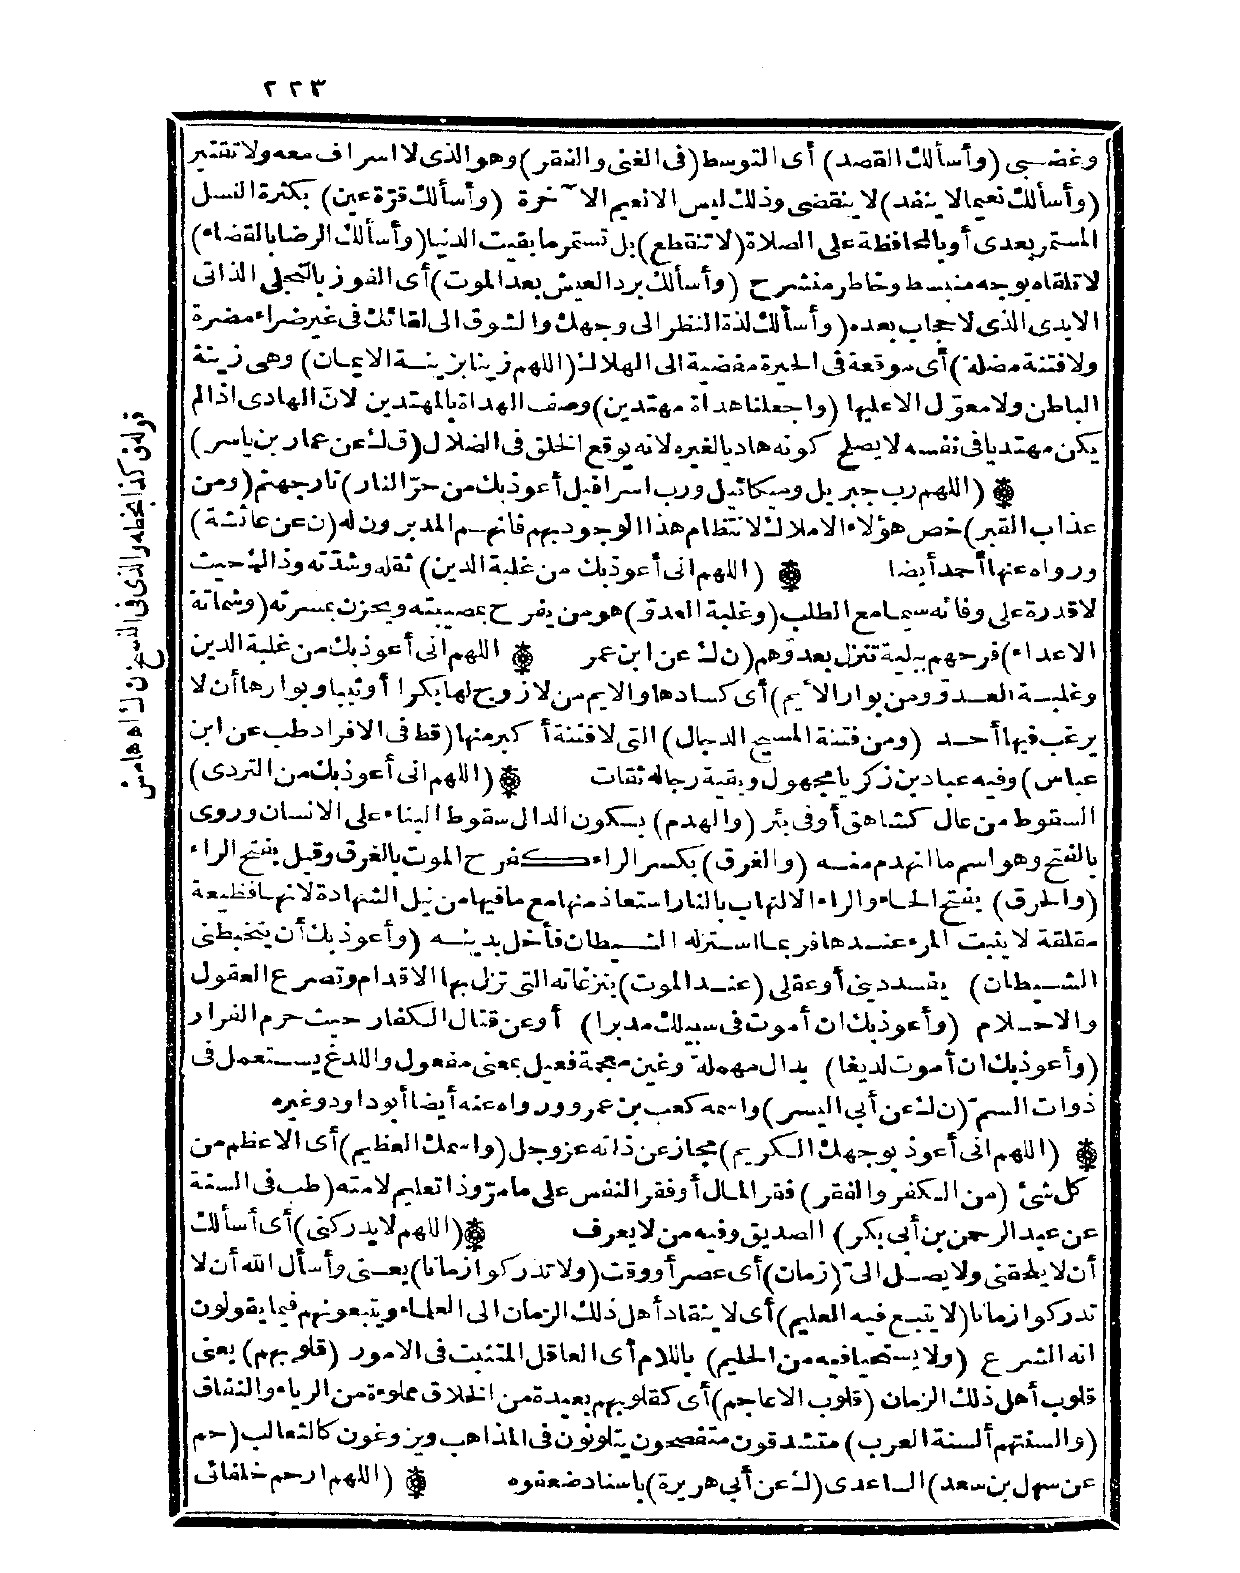 ٢٢٣
وغضبى (وأسألك القصد) أى التوسط (فى الغنى والفقر) وهو الذى لا اسراف معه ولا تقتير
(وأسألك نعيما لا ينفد) لا ينقضى وذلك ليس الا نعيم الآخرة (وأسألك قرّة عين) بكثرة النسل
المستمر بعدى أو بالمحافظة على الصلاة (لا تنقطع) بل تستمر ما بقيت الدنيا (وأسألك الرضا بالقضاء)
لا تلقاه بوجه منبسط وخاطر منشرح (وأسألك برد العيش بعد الموت) أى الفوز بالتجلى الذاتى
الابدى الذى لا حجاب بعده (وأسألك لذة النظر الى وجهك والشوق الى لقائك فى غير ضراء مضرة
ولا فتنة مضلة) أى موقعة فى الحيرة مفضية الى الهلاك (اللهم زينا بزينة الايمان) وهى زينة
الباطن ولا معوّل الا عليها (واجعلنا هداة مهتدين) وصف الهداة بالمهتدين لانّ الهادى اذا لم
يكن مهتديا فى نفسه لا يصلح كونه هاديا لغيره لانه يوقع الخلق فى الضلال (ق ك عن عمار بن ياسر)
(اللهم رب جبريل وميكائيل ورب اسرافيل أعوذ بك من حرّ النار) نار جهنم (ومن
عذاب القبر) خص هؤلاء الاملاك لانتظام هذا الوجود بهم فانهم المدبرون له (ن عن عائشة)
ورواه عنها أحمد أيضا (اللهم انى أعوذ بك من غلبة الدين) ثقله وشدّته وذالك حيث
لا قدرة على وفائه سيما مع الطلب (وغلبة العدوّ) هو من يفرح بمصيبته ويحزن بمسرته (وشماتة
الاعداء) فرحهم ببلية تنزل بعدوّهم (ن ك عن ابن عمر اللهم انى أعوذ بك من غلبة الدين
وغلبة العدوّ ومن بوار الأيم) أى كسادها والايم من لا زوج لها بكرا أو ثيبا وبوارها أن لا
يرغب فيها أحد (ومن فتنة المسيح الدجال) التى لا فتنة أكبر منها (قط فى الافراد طب عن ابن
عباس) وفيه عباد بن زكريا مجهول وبقية رجاله ثقات (اللهم انى أعوذ بك من التردى)
السقوط من عال كشاهق أو فى بئر (والهدم) بسكون الدال سقوط البناء على الانسان وروى
بالفتح وهو اسم ما انهدم منه (والغرق) بكسر الراء كفرح الموت بالغرق وقيل بفتح الراء
(والحرق) بفتح الحاء والراء الالتهاب بالنار استعاذ منها مع ما فيها من نيل الشهادة لانها فظيعة
مقلقة لا يثبت المرء عندها فربما استزله الشيطان فأخل بدينه (وأعوذ بك أن يتخبطنى
الشيطان) يفسد دينى أو عقلى (عند الموت) بنزغاته التى تزل بها الاقدام وتصرع العقول
والاحلام (وأعوذ بك ان أموت فى سبيلك مدبرا) أو عن قتال الكفار حيث حرم الفرار
(وأعوذ بك ان أموت لديغا) بدال مهملة وغين معجمة فعيل بمعنى مفعول واللدغ يستعمل فى
ذوات السمّ (ن ك عن أبى اليسر) واسمه كعب بن عمرو ورواه عنه أيضا أبو داود وغيره
(اللهم انى أعوذ بوجهك الكريم) مجاز عن ذاته عز وجل (واسمك العظيم) أى الاعظم من
كل شئ (من الكفر والفقر) فقر المال أو فقر النفس على ما مرّ وذا تعليم لامته (طب فى السنة
عن عبد الرحمن بن أبى بكر) الصديق وفيه من لا يعرف (اللهم لا يدركنى) أى أسألك
أن لا يلحقنى ولا يصل الىّ (زمان) أى عصر أو وقت (ولا تدركوا زمانا) يعنى وأسأل الله أن لا
تدركوا زمانا (لا يتبع فيه العليم) أى لا ينقاد أهل ذلك الزمان الى العلماء ويتبعونهم فيما يقولون
انه الشرع (ولا يستحيا فيه من الحليم) باللام أى العاقل المتثبت فى الامور (قلوبهم) يعنى
قلوب أهل ذلك الزمان (قلوب الاعاجم) أى كقلوبهم بعيدة من الخلاق مملوءة من الرياء والنفاق
(والسنتهم ألسنة العرب) متشدقون متفصحون يتلونون فى المذاهب ويروغون كالثعالب (حم
عن سهل بن سعد) الساعدى (ك عن أبى هريرة) باسناد ضعفوه (اللهم ارحم خلفائى
قوله ق كذا بخطه والذى فى النسخ ن ك اه هامش